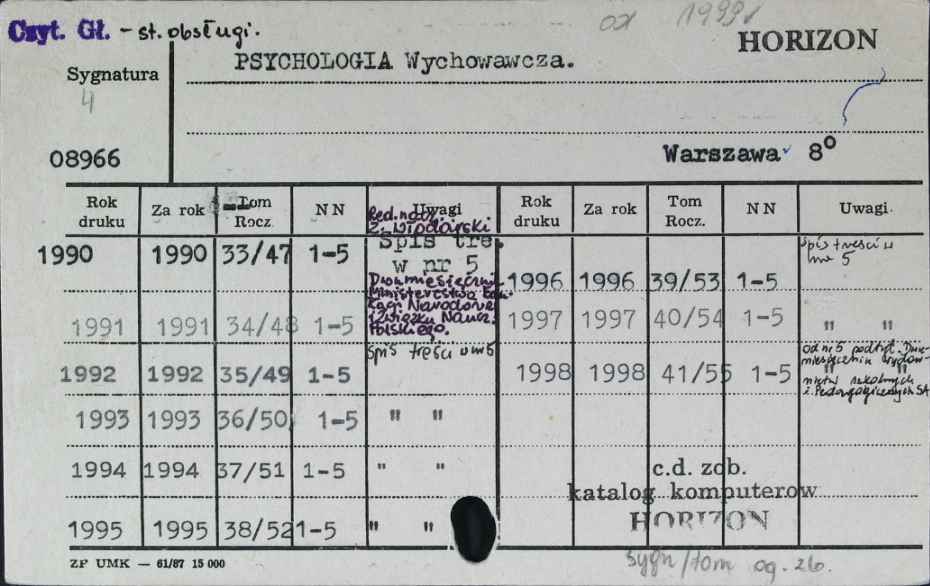 Czyt. Gł. - st. obsługi.
od 1999r
HORIZON
PSYCHOLOGIA Wychowawcza.
Sygnatura
4
08966
Warszawa 8°
Rok druku Za rok Tom Rocz. N N Uwagi Rok druku Za rok Tom Rocz. N N Uwagi
Red. nacz.
Z. Włodarski
1990 1990 33/47 1-5 Spis treś.
w nr 5
Dwumiesięcznik
Ministerstwa Edu-
kacji Narodowej
i Związku Naucz.
Polskiego.
1991 1991 34/48 1-5
1992 1992 35/49 1-5 Spis treści w nr 5
1993 1993 36/50 1-5 " "
1994 1994 37/51 1-5 " "
1995 1995 38/52 1-5 " "
1996 1996 39/53 1-5 Spis treści w
nr 5
1997 1997 40/54 1-5 " "
1998 1998 41/55 1-5 od nr 5 podtyt. Dwu-
miesięcznik Wydaw-
nictw Szkolnych
i Pedagogicznych SA
c.d. zob.
katalog komputerow
HORIZON
sygn/tom og. 26.
ZP UMK — 61/87 15 000